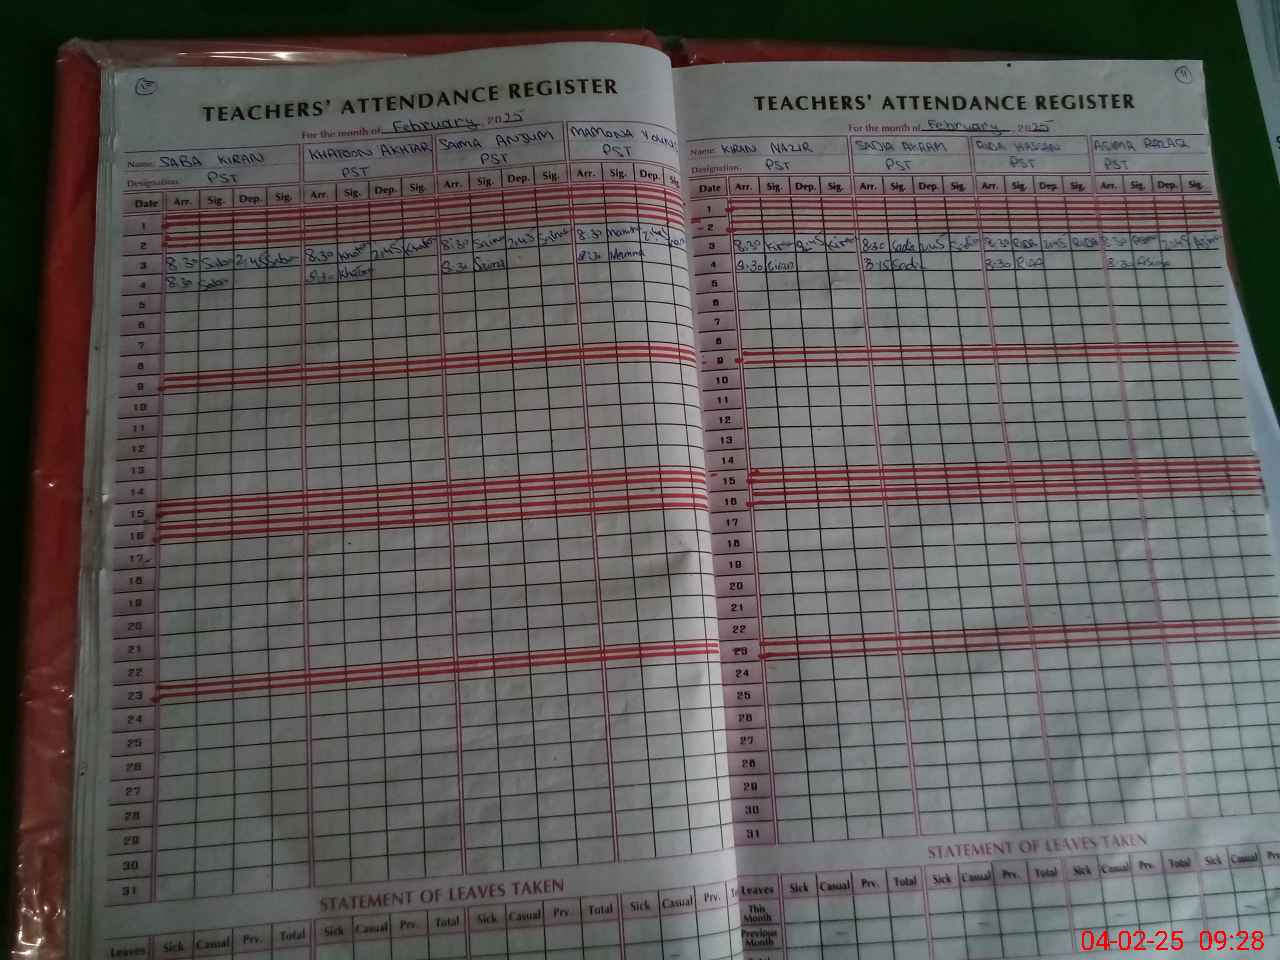 TEACHERS' ATTENDANCE REGISTER
For the month of February 2025
Name SABA KIRAN KHATOON AKHTAR SAIMA ANJUM MAMONA YOUNIS
Designation. PST PST PST PST
Date Arr. Sig. Dep. Sig. Arr. Sig. Dep. Sig. Arr. Sig. Dep. Sig. Arr. Sig. Dep. Sig.
1
2
3 8:30 Saba 2:45 Saba 8:30 Khatoon 2:45 Khatoon 8:30 Saima 2:45 8:30
4 8:30 Saba 8:30 Khatoon 8:30 Saima 8:30
5
6
7
8
9
10
11
12
13
14
15
16
17
18
19
20
21
22
23
24
25
26
27
28
29
30
31
STATEMENT OF LEAVES TAKEN
Leaves Sick Casual Prv. Total Sick Casual Prv. Total Sick Casual Prv. Total Sick Casual Prv.
11
TEACHERS' ATTENDANCE REGISTER
For the month of February 2025
Name KIRAN NAZIR SADIA AKRAM RIDA HASSAN ASIMA RAZAQ
Designation. PST PST PST PST
Date Arr. Sig. Dep. Sig. Arr. Sig. Dep. Sig. Arr. Sig. Dep. Sig. Arr. Sig. Dep. Sig.
1
2
3 8:30 Kiran 2:45 Kiran 8:30 Sadia 2:45 Sadia 8:30 RIDA 2:45 RIDA 8:30 2:45
4 8:30 Kiran Sadia 8:30 RIDA 8:30
5
6
7
8
9
10
11
12
13
14
15
16
17
18
19
20
21
22
23
24
25
26
27
28
29
30
31
STATEMENT OF LEAVES TAKEN
Leaves Sick Casual Prv. Total Sick Casual Prv. Total Sick Casual Prv. Total Sick Casual
This Month
Previous Month
04-02-25 09:28